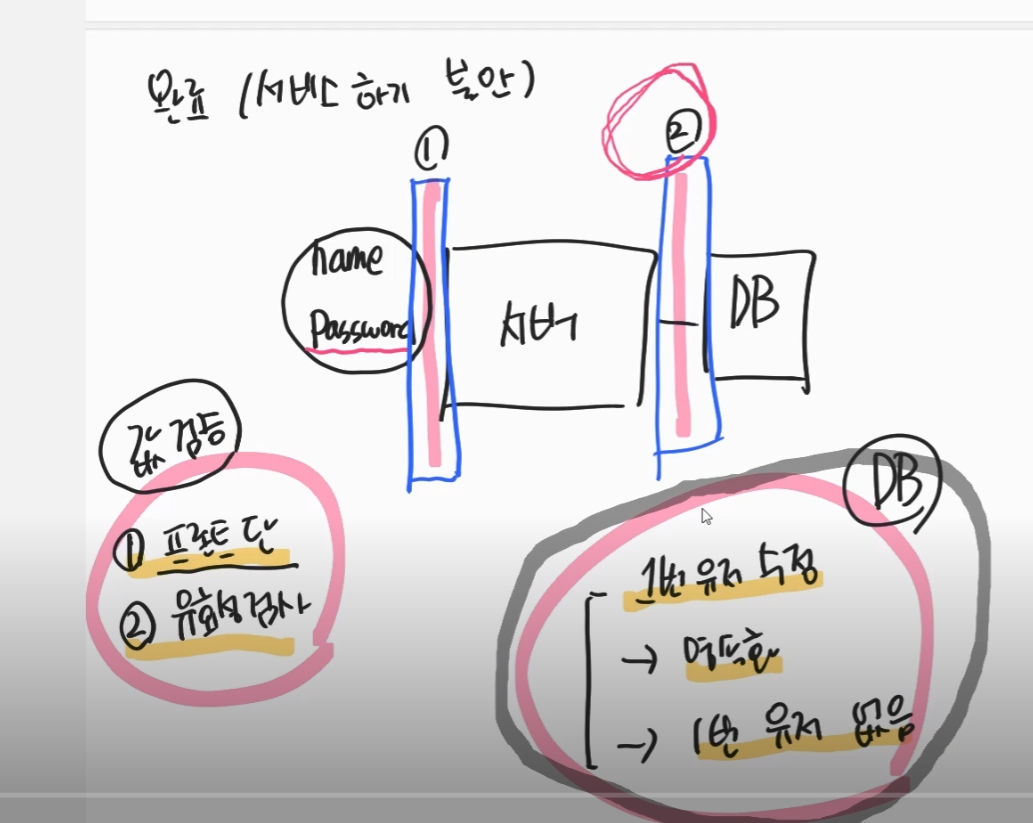 완료 (서비스 하기 불안)
① ②
name
Password
서버
DB
값 검증
① 프론트 단
② 유효성 검사
DB
1번 유저 수정
→ 영속화
→ 1번 유저 없음